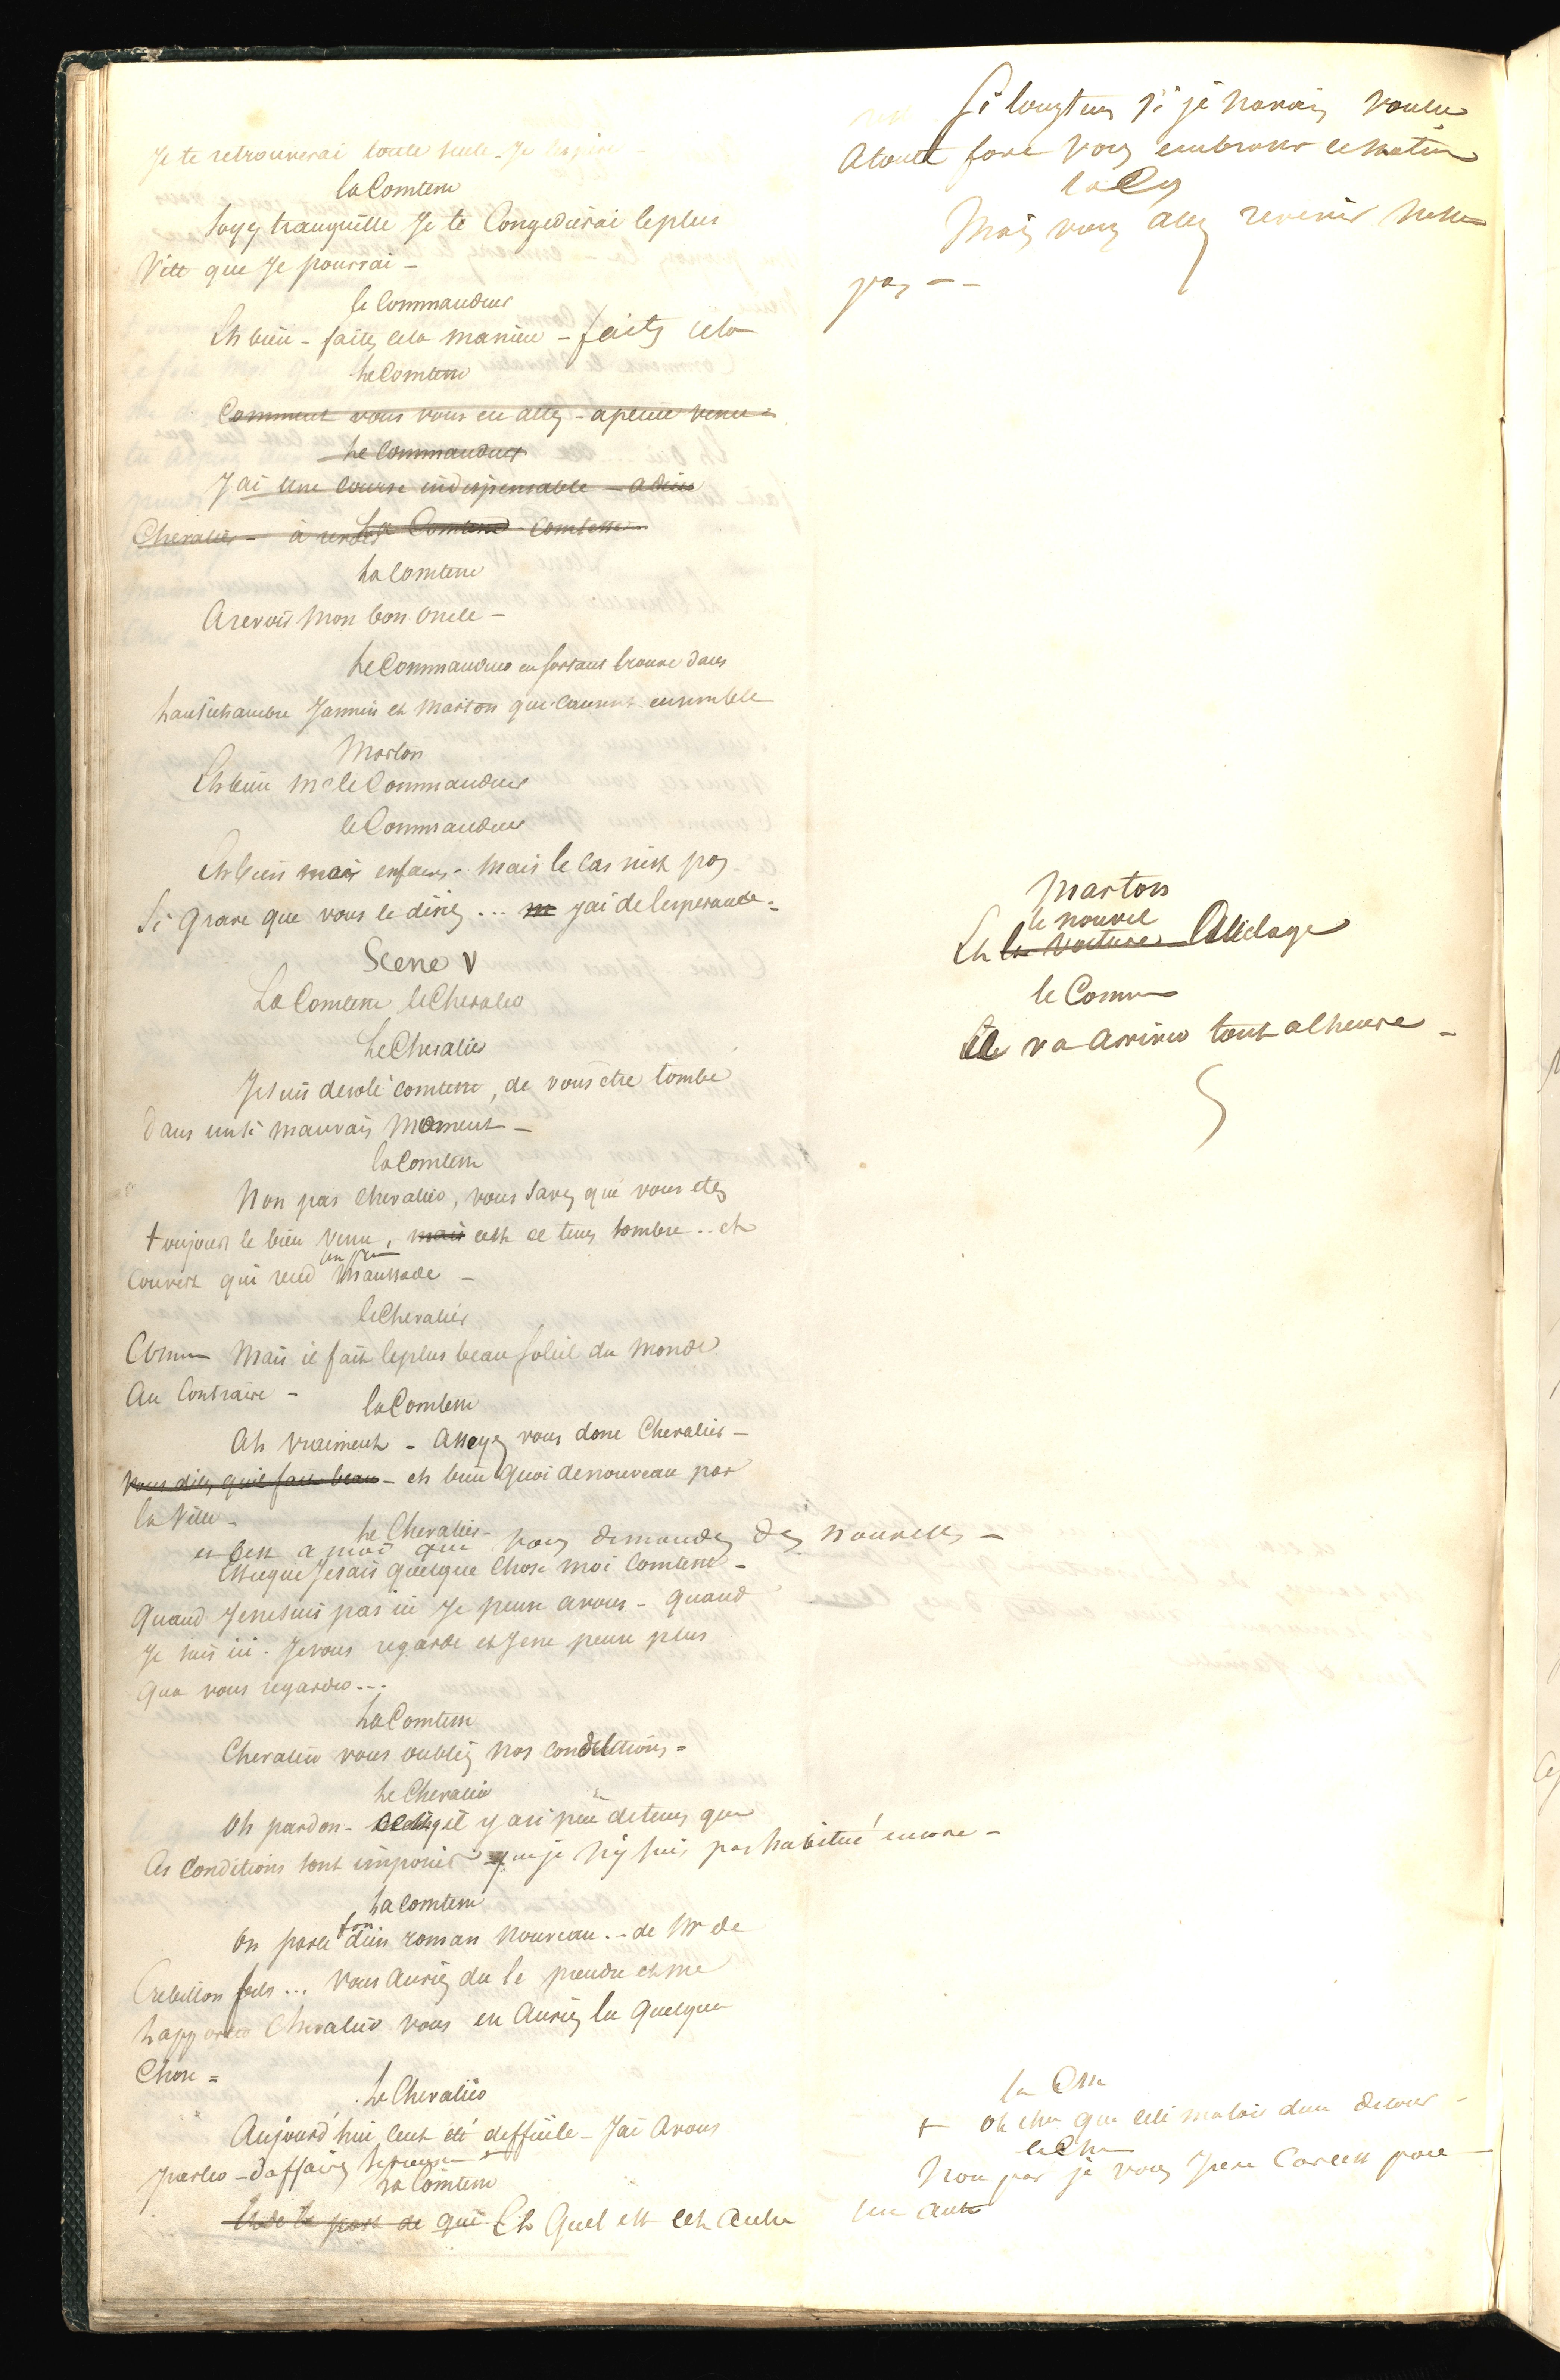 Je te retrouverai toute seule. Je
la Comtesse
Soyez tranquille Je te Congedierai le plus
Vite que Je pourrai -
le Commandeur
Eh bien - faites cela ma niece - faites cela
la Comtesse
Comment vous vous en allez - a peine venu
Le Commandeur
J'ai une course indispensable - adieu
Chevalier - à Comtesse
La Comtesse
A revoir mon bon oncle -
Le Commandeur en sortant trouve dans
l'antichambre Jasmin et Marton qui causent ensemble
Marton
Eh bien Mr le Commandeur
le Commandeur
Eh bien mes enfans - Mais le Cas n'est pas
Si grave que vous le disiez ... j'ai de l'esperance -
Scene V
La Comtesse le Chevalier
Le Chevalier
Je suis desolé comtesse, de vous etre tombé
dans un si mauvais moment -
la Comtesse
Non pas chevalier, vous savez que vous etes
toujours le bien venu, mais cest ce tems sombre .. et
couvert qui rend un peu Maussade -
le Chevalier
Comm Mais il fait le plus beau soleil du monde
Au Contraire -
la Comtesse
Ah vraiment - Asseyez vous donc Chevalier -
Vous dites qu'il fait beau - eh bien Quoi de nouveau par
la Ville -
Le Chevalier -
et cest a moi que vous demandez des nouvelles -
Est ce que Je sais quelque Chose moi Comtesse -
Quand Je ne suis pas ici Je pense a vous - Quand
Je suis ici - Je vous regarde et Je ne pense plus
Qua vous regarder ...
La Comtesse
Chevalier vous oubliez nos conditions -
Le Chevalier
Oh pardon - il y a si peu de tems que
Ces Conditions sont imposées que je n'y suis pas habitué encore -
La Comtesse
On parle fort d'un roman Nouveau .. de Mr de
Crebillon fils ... Vous auriez du le prendre et me
l'apporter Chevalier vous en auriez lu Quelque
Chose -
Le Chevalier
Aujourd'hui Ceut été difficile - J'ai A vous
parler - d'affaires serieuses +
La Comtesse
Et de la part de qui Et Quel est cet autre
Si longtems si je n'avais voulu
A toute force vous embrasser ce matin
la C
Mais vous allez revenir n'est
pas - -
Marton
le nouvel
Et la voiture Attelage
le Comm
Il va arriver tout a l'heure -
la Csse
+ Oh cher
le Ch
Non pas je vous jure Car cest pour
un autre